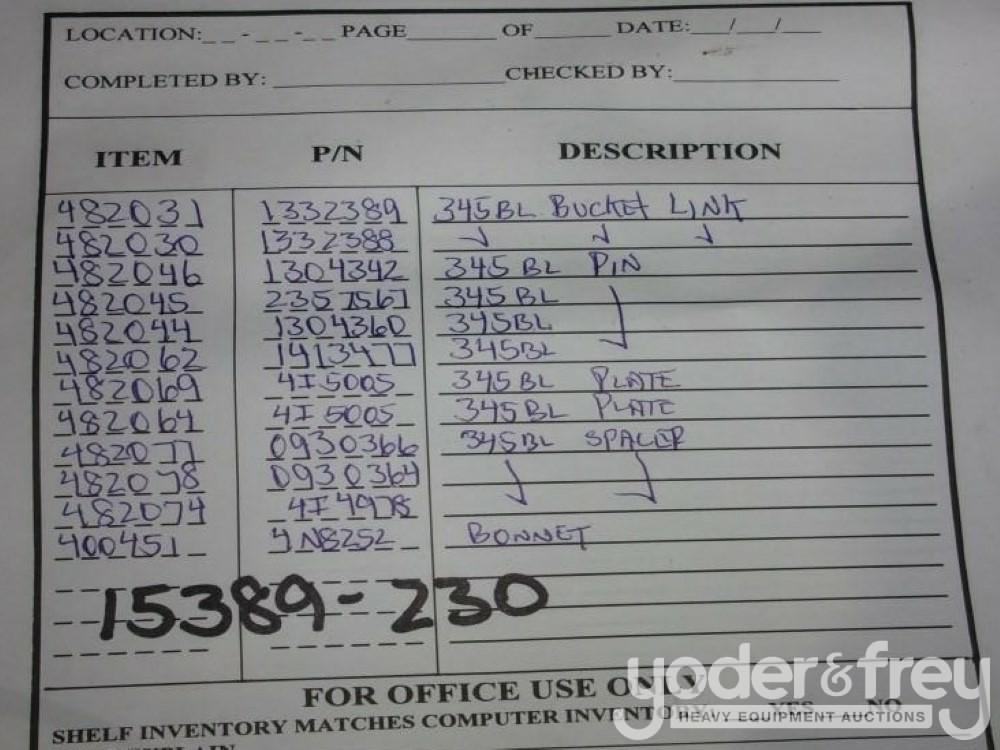 LOCATION:_ _ - _ _ -_ _ PAGE______ OF______ DATE:___/___/___
COMPLETED BY: ____________________ CHECKED BY:______________
ITEM P/N DESCRIPTION
482031 1332389 345BL BUCKET LINK
482030 1332388 ✓ ✓ ✓
482046 1304342 345 BL PIN
482045 2357567 345 BL
482044 1304360 345BL
482062 1413477 345BL
482069 4I5005 345 BL PLATE
482064 4I5005 345BL PLATE
482077 0930366 345BL SPACER
482078 0930364
482074 4I4978
400451 4N8252 BONNET
15389-230
FOR OFFICE USE ONLY
SHELF INVENTORY MATCHES COMPUTER INVENTORY YES NO
yoder&frey
HEAVY EQUIPMENT AUCTIONS